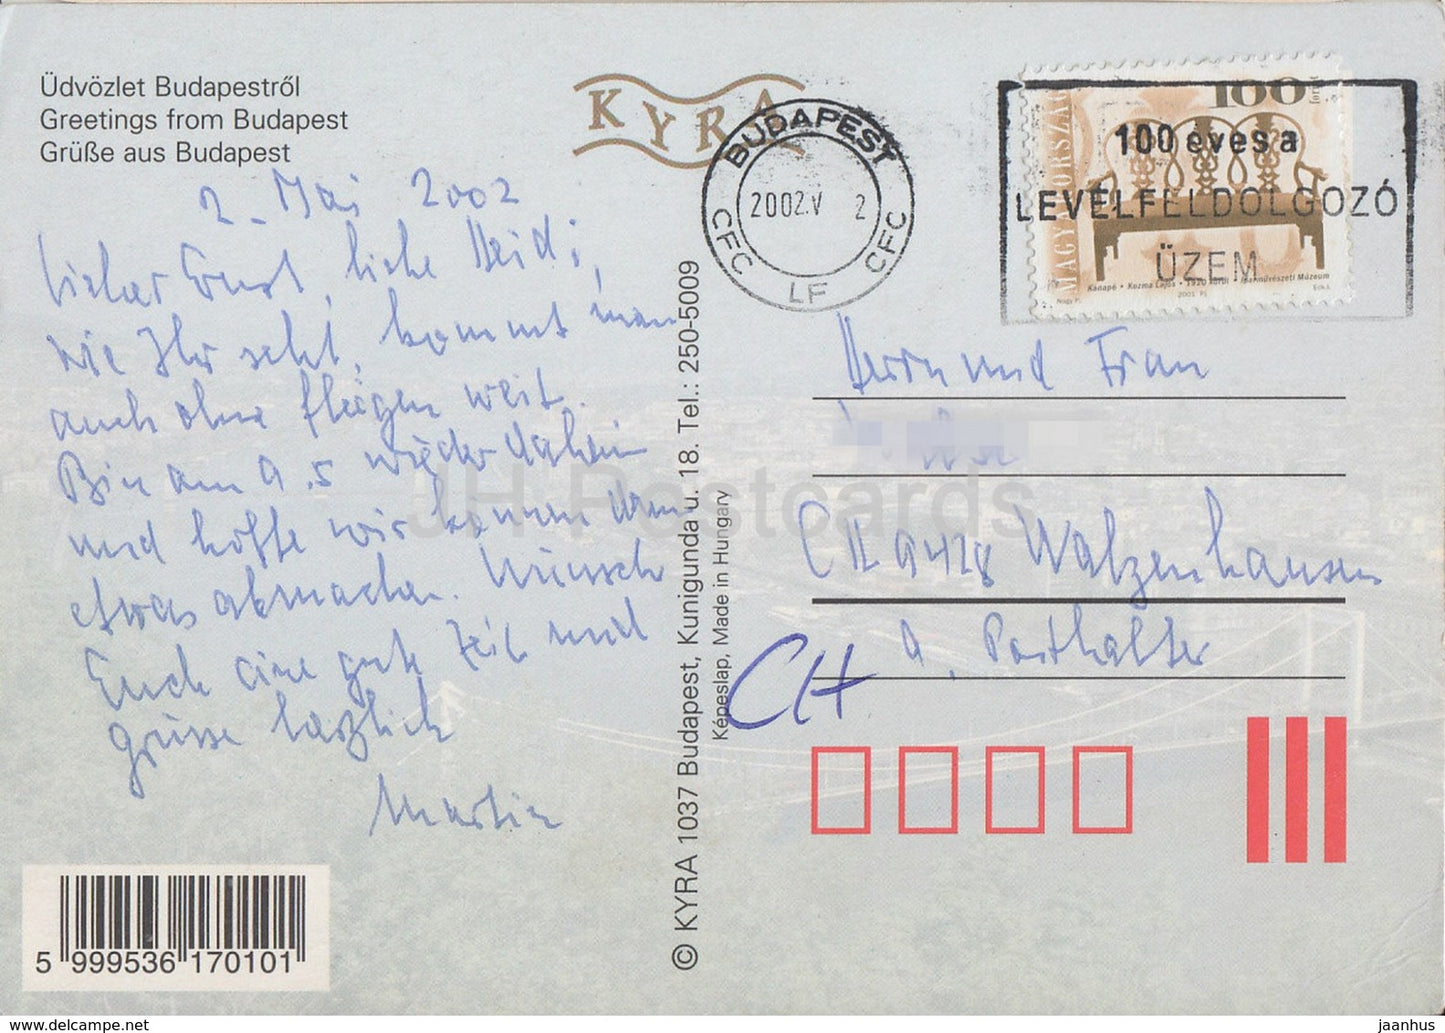 Üdvözlet Budapestről
Greetings from Budapest
Grüße aus Budapest
KYRA
2. Mai 2002
Lieber Ernst, liebe Heidi,
wie Ihr seht, kommt man
auch ohne fliegen weit.
Bin am 9.5 wieder daheim
und hoffe wir können dann
etwas abmachen. Wünsch
Euch eine gute Zeit und
grüsse herzlich
Martin
5 999536 170101
© KYRA 1037 Budapest, Kunigunda u. 18. Tel.: 250-5009
Képeslap, Made in Hungary
BUDAPEST
2002.V 2
CFC LF CFC
100 éves a
LEVÉLFELDOLGOZÓ
ÜZEM
100 forint
MAGYARORSZÁG
Kanapé • Kozma Lajos • 1920 körül • Iparművészeti Múzeum
2001
Herrn und Frau
CH 9428 Walzenhausen
a. Posthalter
CH
JH Postcards
delcampe.net
jaanhus